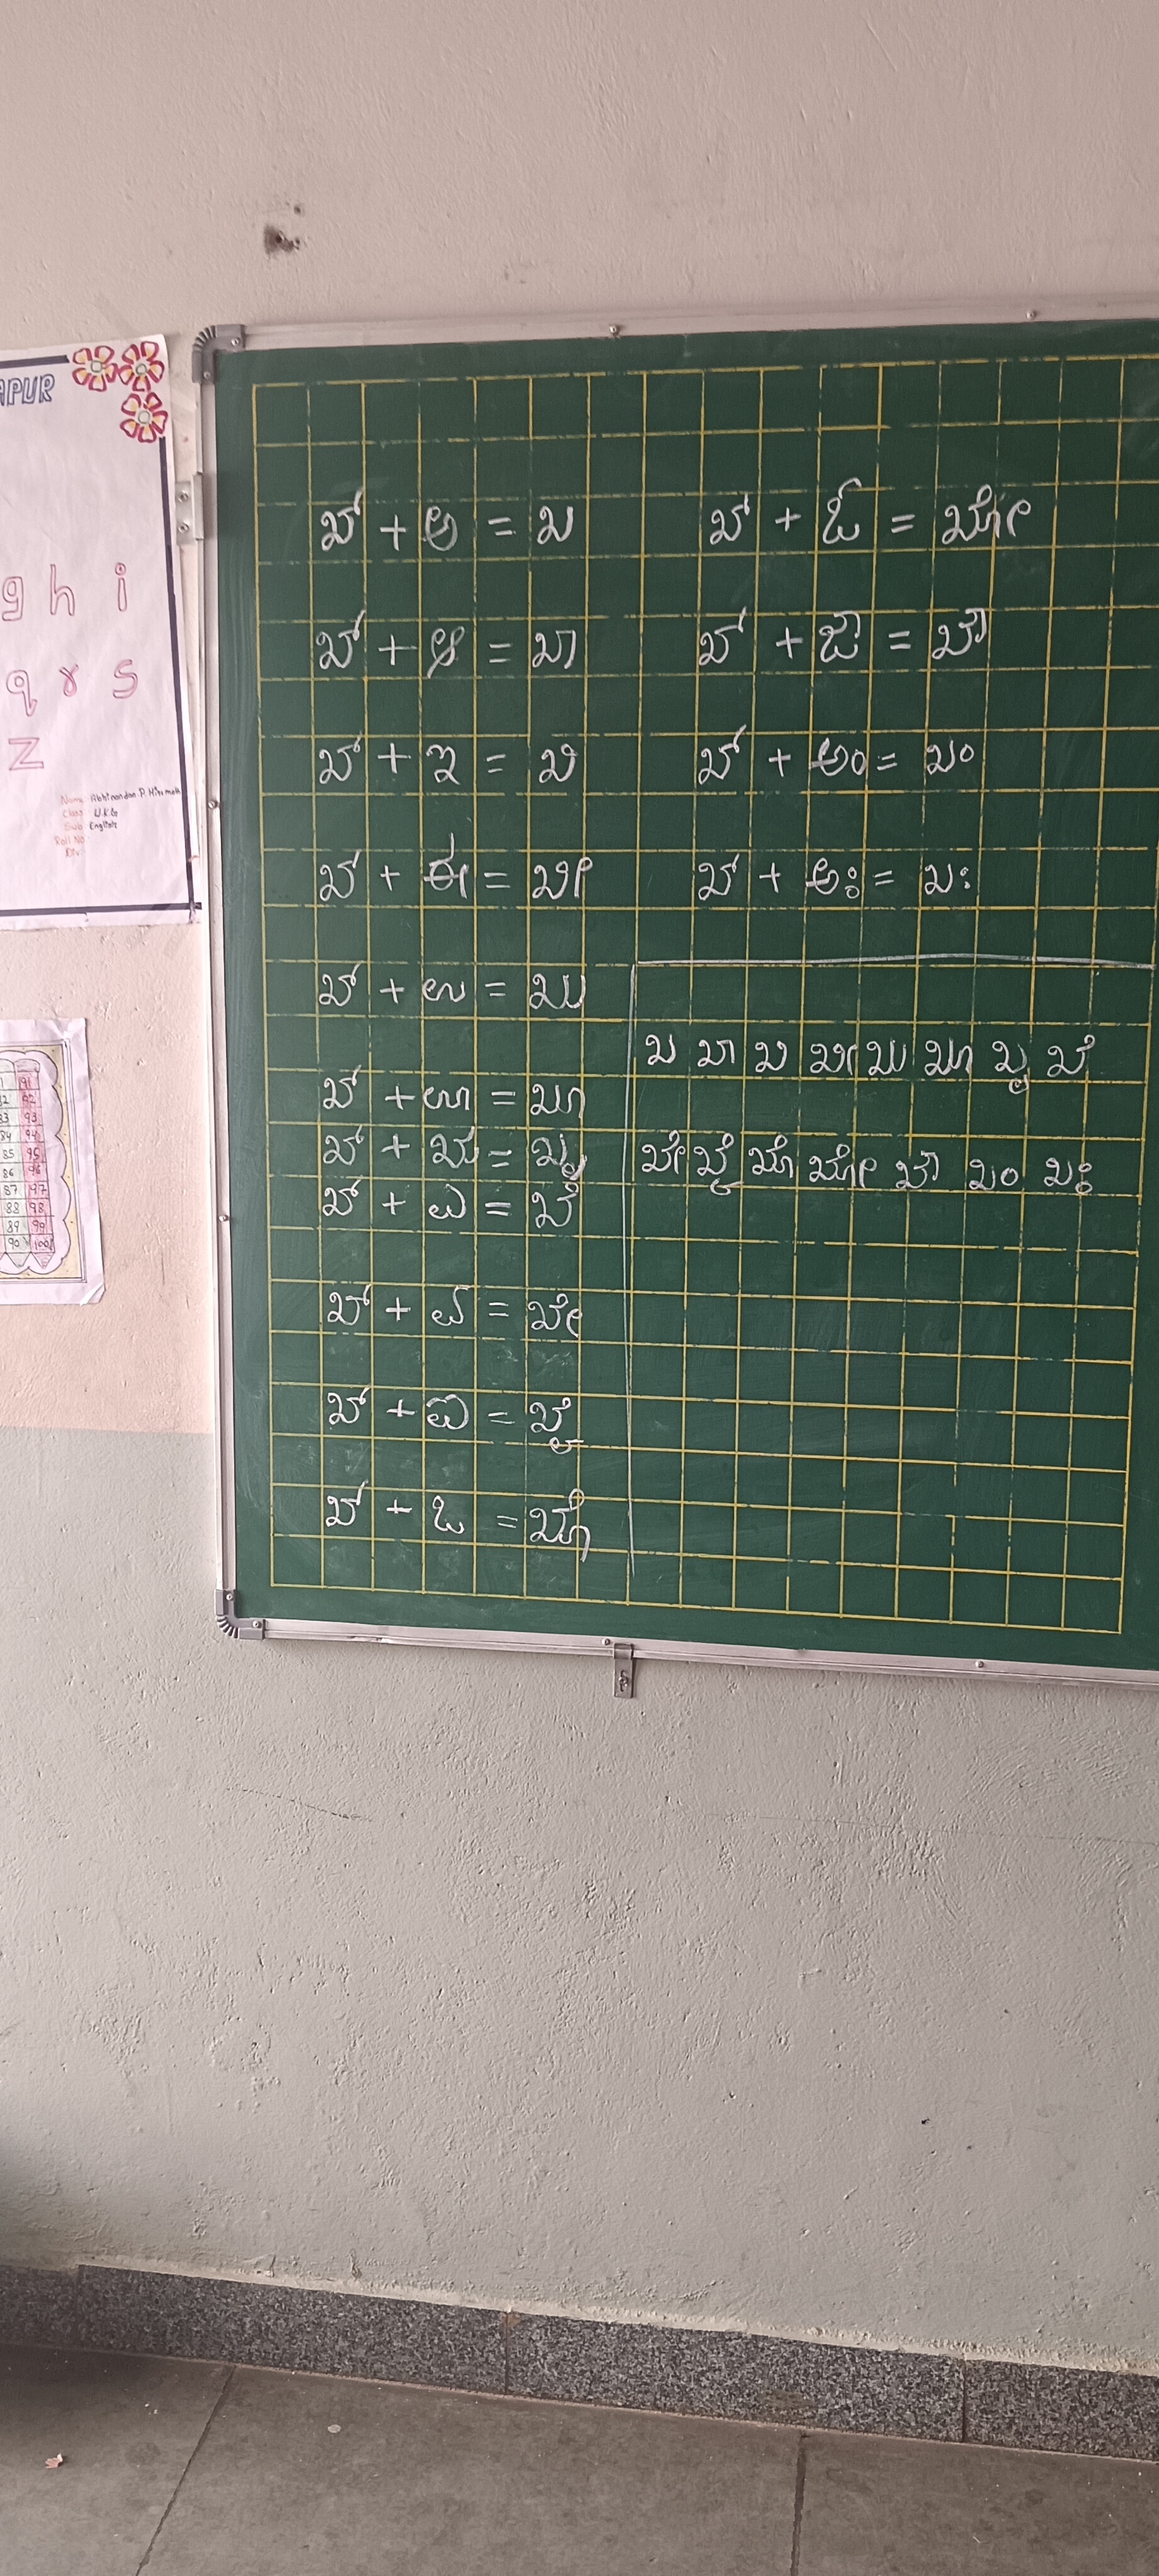 APUR
g h i
q r s
z
Name: Abhinandan P. Hiremath
Class: U.K.G
Sub: English
Roll No:
Div:
91
82 92
83 93
84 94
85 95
86 96
87 97
88 98
89 99
90 100
ಖ್ + ಅ = ಖ
ಖ್ + ಆ = ಖಾ
ಖ್ + ಇ = ಖಿ
ಖ್ + ಈ = ಖೀ
ಖ್ + ಉ = ಖು
ಖ್ + ಊ = ಖೂ
ಖ್ + ಋ = ಖೃ
ಖ್ + ಎ = ಖೆ
ಖ್ + ಏ = ಖೇ
ಖ್ + ಐ = ಖೈ
ಖ್ + ಒ = ಖೊ
ಖ್ + ಓ = ಖೋ
ಖ್ + ಔ = ಖೌ
ಖ್ + ಅಂ = ಖಂ
ಖ್ + ಅಃ = ಖಃ
ಖ ಖಾ ಖಿ ಖೀ ಖು ಖೂ ಖೃ ಖೆ
ಖೇ ಖೈ ಖೊ ಖೋ ಖೌ ಖಂ ಖಃ